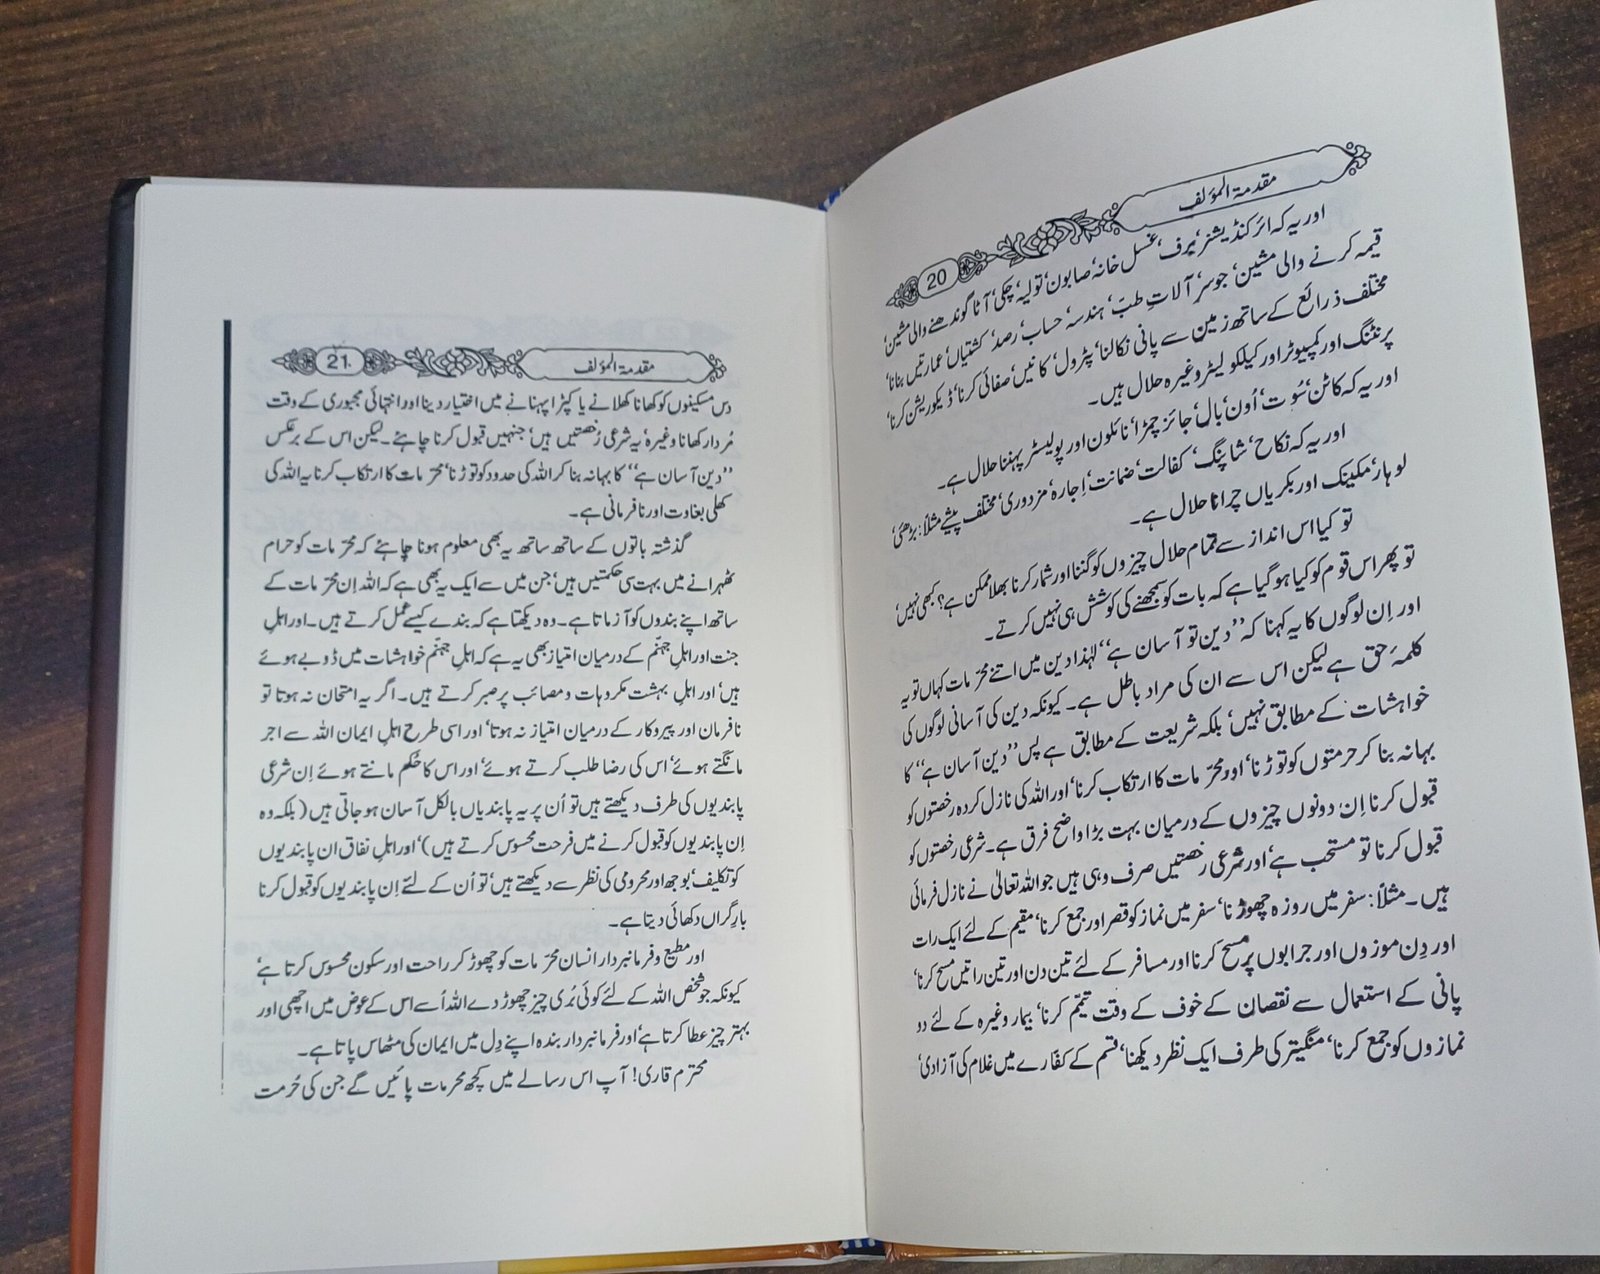 مقدمۃ المؤلف
20
اور یہ کہ ائرکنڈیشنر‘ برف‘ غسل خانہ‘ صابون‘ تولیہ‘ چکی‘ آٹا گوندھنے والی مشین‘
قیمہ کرنے والی مشین‘ جوسر‘ آلاتِ طبّ‘ ہندسہ‘ حساب‘ رصد‘ کشتیاں‘ عمارتیں بنانا‘
مختلف ذرائع کے ساتھ زمین سے پانی نکالنا‘ پٹرول‘ کانیں‘ صفائی کرنا‘ ڈیکوریشن کرنا‘
پرنٹنگ اور کمپیوٹر اور کیلکولیٹر وغیرہ حلال ہیں۔
اور یہ کہ کاٹن‘ سُوت‘ اُون‘ بال‘ جائز چمڑا‘ نائلون اور پولیسٹر پہننا حلال ہے۔
اور یہ کہ نکاح‘ شاپنگ‘ کفالت‘ ضمانت‘ اِجارہ‘ مزدوری‘ مختلف پیشے مثلاً: بڑھئی‘
لوہار‘ مکینک اور بکریاں چرانا حلال ہے۔
تو کیا اس انداز سے تمام حلال چیزوں کو گننا اور شمار کرنا بھلا ممکن ہے؟ کبھی نہیں‘
تو پھر اس قوم کو کیا ہو گیا ہے کہ بات کو سمجھنے کی کوشش ہی نہیں کرتے۔
اور اِن لوگوں کا یہ کہنا کہ ’’دین تو آسان ہے‘‘ لہٰذا دین میں اتنے محرّمات کہاں تو یہ
کلمۂ حق ہے لیکن اس سے ان کی مراد باطل ہے۔ کیونکہ دین کی آسانی لوگوں کی
خواہشات کے مطابق نہیں‘ بلکہ شریعت کے مطابق ہے پس ’’دین آسان ہے‘‘ کا
بہانہ بنا کر حرمتوں کو توڑنا‘ اور محرّمات کا ارتکاب کرنا‘ اور اللہ کی نازل کردہ رخصتوں کو
قبول کرنا اِن دونوں چیزوں کے درمیان بہت بڑا واضح فرق ہے۔ شرعی رخصتوں کو
قبول کرنا تو مستحب ہے‘ اور شرعی رخصتیں صرف وہی ہیں جو اللہ تعالیٰ نے نازل فرمائی
ہیں۔ مثلاً: سفر میں روزہ چھوڑنا‘ سفر میں نماز کو قصر اور جمع کرنا‘ مقیم کے لئے ایک رات
اور دِن موزوں اور جرابوں پر مسح کرنا اور مسافر کے لئے تین دن اور تین راتیں مسح کرنا‘
پانی کے استعمال سے نقصان کے خوف کے وقت تیمّم کرنا‘ بیمار وغیرہ کے لئے دو
نمازوں کو جمع کرنا‘ منگیتر کی طرف ایک نظر دیکھنا‘ قسم کے کفّارے میں غلام کی آزادی‘
مقدمۃ المؤلف
21
دس مسکینوں کو کھانا کھلانے یا کپڑا پہنانے میں اختیار دینا اور انتہائی مجبوری کے وقت
مُردار کھانا وغیرہ‘ یہ شرعی رُخصتیں ہیں‘ جنہیں قبول کرنا چاہئے۔ لیکن اس کے برعکس
’’دین آسان ہے‘‘ کا بہانہ بنا کر اللہ کی حدود کو توڑنا‘ محرّمات کا ارتکاب کرنا یہ اللہ کی
کھلی بغاوت اور نافرمانی ہے۔
گذشتہ باتوں کے ساتھ ساتھ یہ بھی معلوم ہونا چاہئے کہ محرّمات کو حرام
ٹھہرانے میں بہت سی حکمتیں ہیں‘ جن میں سے ایک یہ بھی ہے کہ اللہ اِن محرّمات کے
ساتھ اپنے بندوں کو آزماتا ہے۔ وہ دیکھتا ہے کہ بندے کیسے عمل کرتے ہیں۔ اور اہلِ
جنت اور اہلِ جہنّم کے درمیان امتیاز بھی یہ ہے کہ اہلِ جہنّم خواہشات میں ڈوبے ہوئے
ہیں‘ اور اہلِ بہشت مکروہات و مصائب پر صبر کرتے ہیں۔ اگر یہ امتحان نہ ہوتا تو
نافرمان اور پیروکار کے درمیان امتیاز نہ ہوتا‘ اور اسی طرح اہلِ ایمان اللہ سے اجر
مانگتے ہوئے‘ اس کی رضا طلب کرتے ہوئے‘ اور اس کا حُکم مانتے ہوئے اِن شرعی
پابندیوں کی طرف دیکھتے ہیں تو اُن پر یہ پابندیاں بالکل آسان ہو جاتی ہیں (بلکہ وہ
اِن پابندیوں کو قبول کرنے میں فرحت محسوس کرتے ہیں)‘ اور اہلِ نفاق ان پابندیوں
کو تکلیف‘ بوجھ اور محرومی کی نظر سے دیکھتے ہیں‘ تو اُن کے لئے اِن پابندیوں کو قبول کرنا
بارِگراں دکھائی دیتا ہے۔
اور مطیع و فرمانبردار انسان محرّمات کو چھوڑ کر راحت اور سکون محسوس کرتا ہے‘
کیونکہ جو شخص اللہ کے لئے کوئی بُری چیز چھوڑ دے اللہ اُسے اس کے عوض میں اچھی اور
بہتر چیز عطا کرتا ہے‘ اور فرمانبردار بندہ اپنے دِل میں ایمان کی مٹھاس پاتا ہے۔
محترم قاری! آپ اس رسالے میں کچھ محرمات پائیں گے جن کی حُرمت